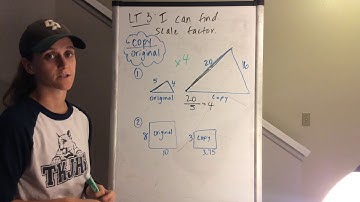 LT 3: I can find
scale factor.
copy
original
①
5
4
original
x4
20
16
copy
20
5
=4
②
8
original
10
3
copy
3.75
TKJHS